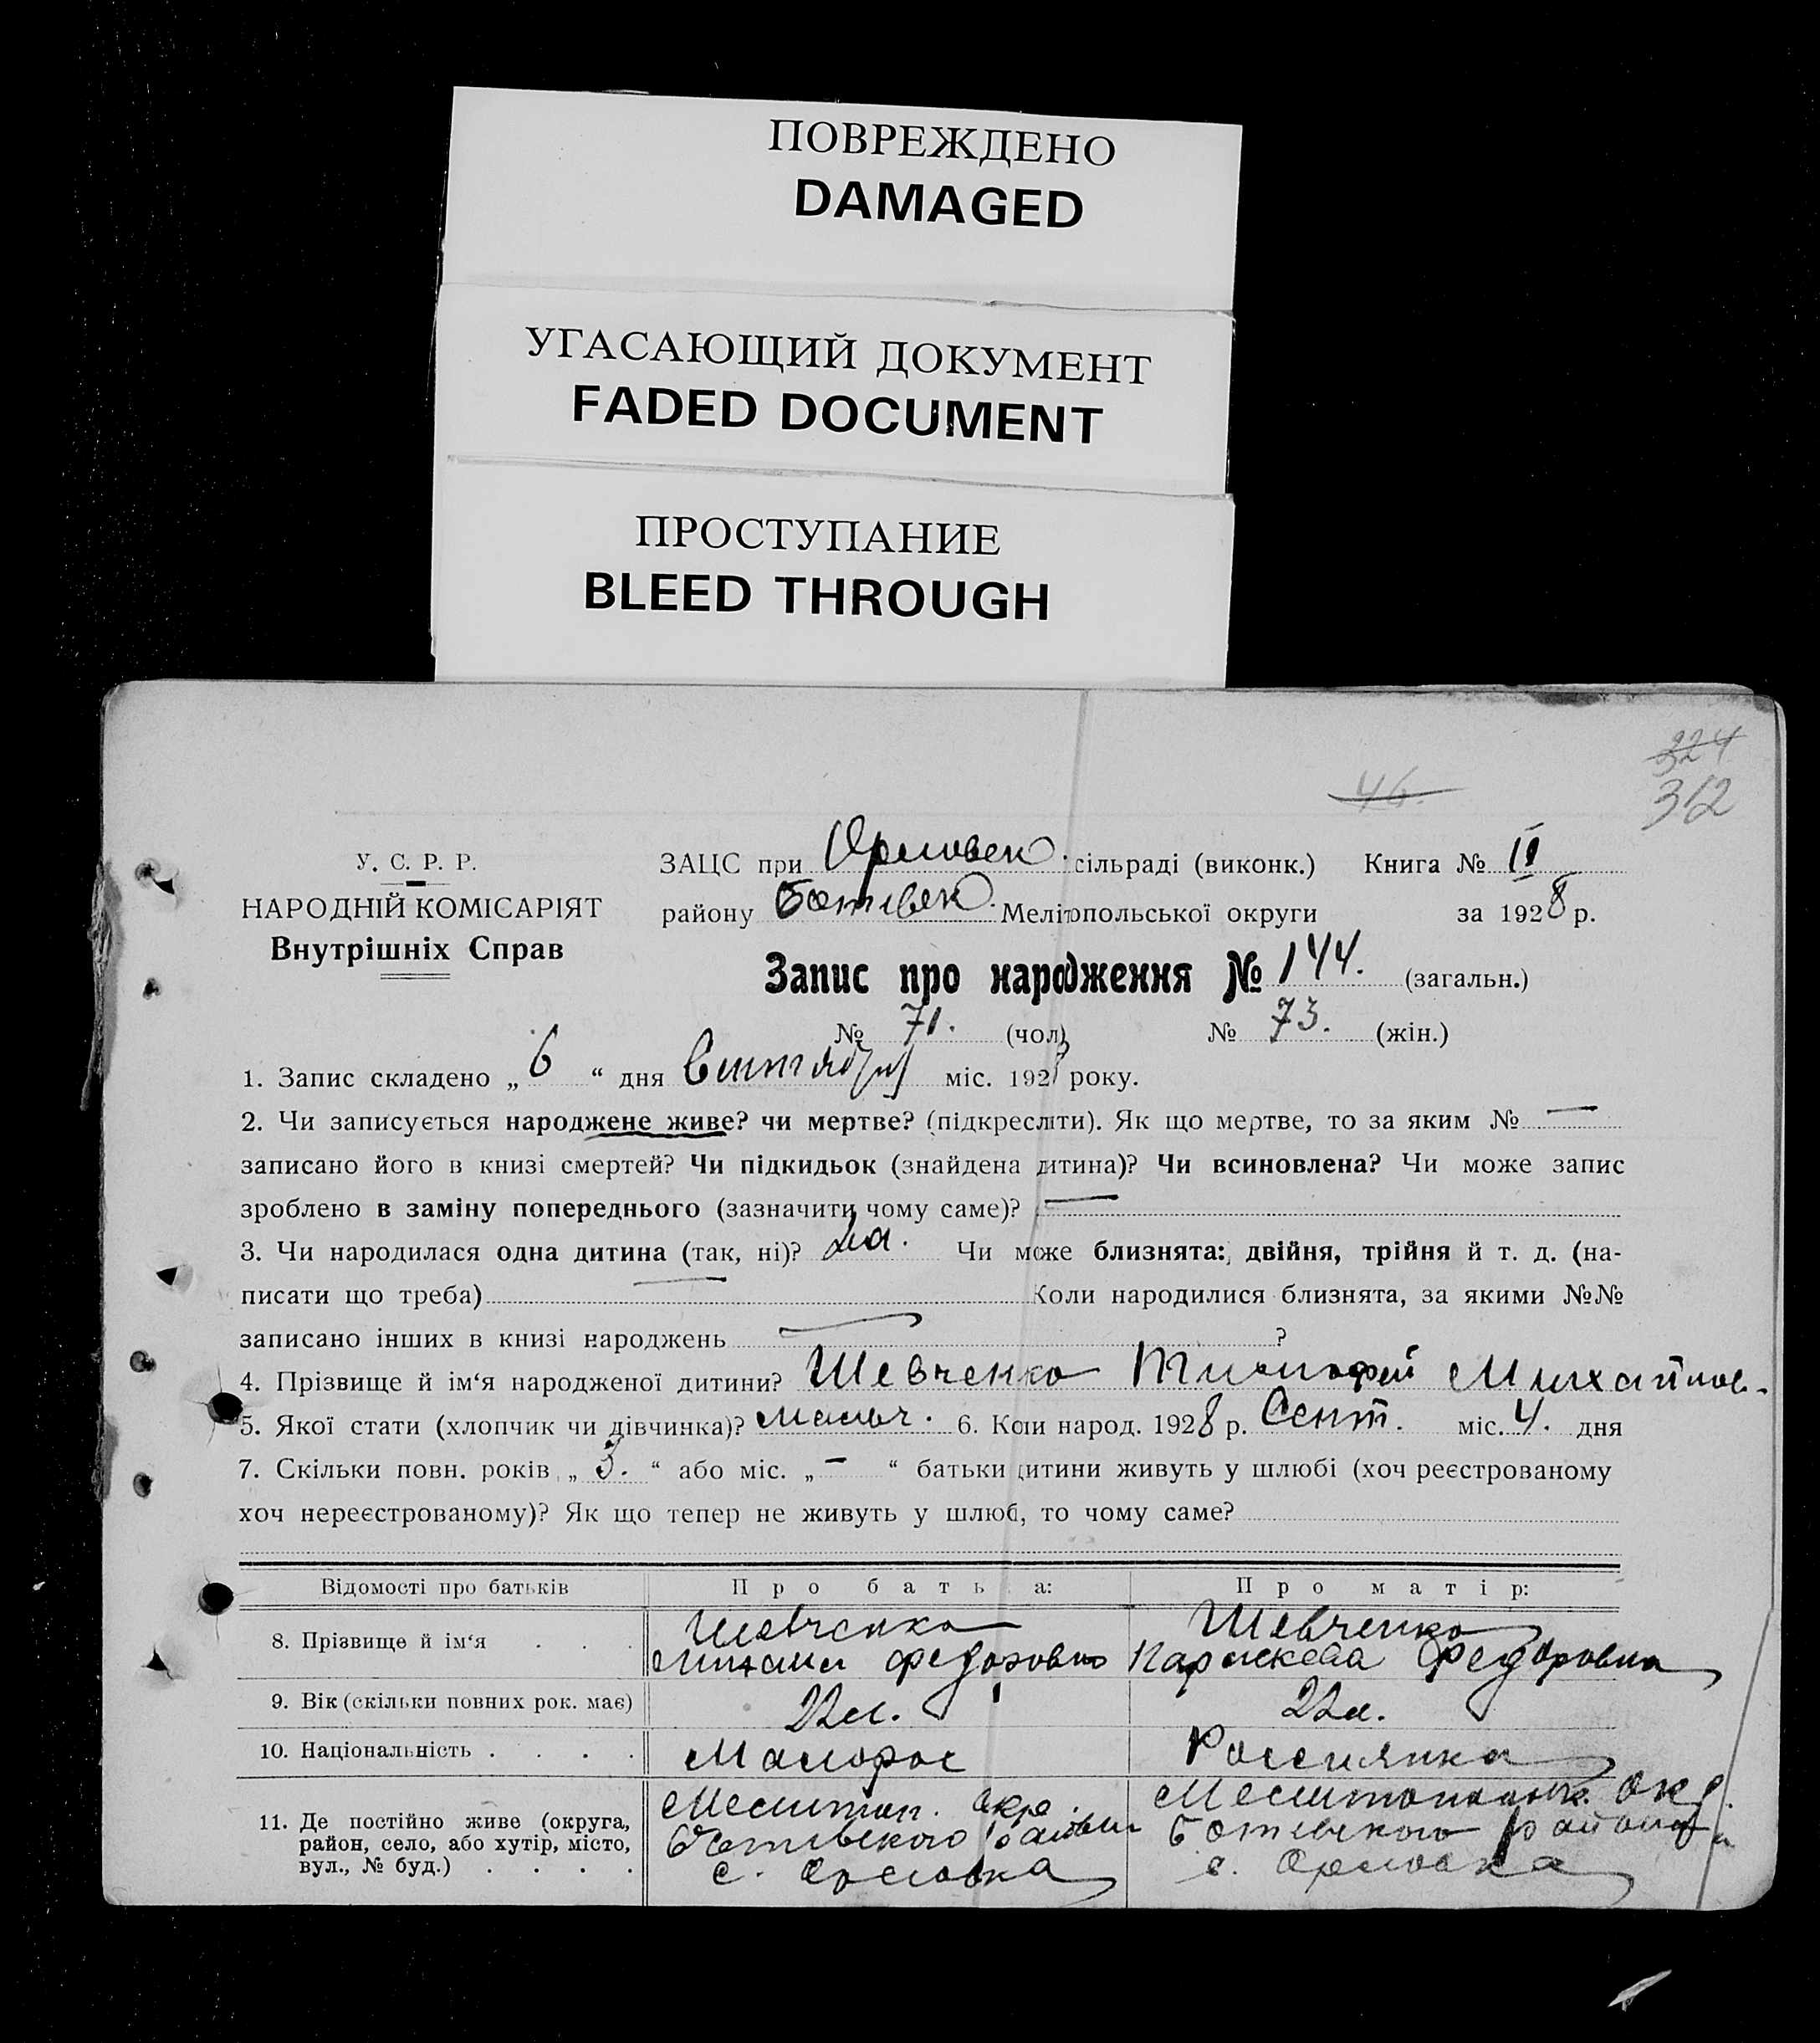 ПОВРЕЖДЕНО
DAMAGED
УГАСАЮЩИЙ ДОКУМЕНТ
FADED DOCUMENT
ПРОСТУПАНИЕ
BLEED THROUGH
324
46.
312
У. С. Р. Р.
НАРОДНІЙ КОМІСАРІЯТ
Внутрішніх Справ
ЗАЦС при Орловск. сільраді (виконк.) Книга № II
району Ботивск. Мелітопольської округи за 1928 р.
Запис про народження № 144. (загальн.)
№ 71. (чол) № 73. (жін.)
1. Запис складено „ 6 “ дня Сентября міс. 1928 року.
2. Чи записується народжене живе? чи мертве? (підкреслити). Як що мертве, то за яким № —
записано його в книзі смертей? Чи підкидьок (знайдена дитина)? Чи всиновлена? Чи може запис
зроблено в заміну попереднього (зазначити чому саме)? —
3. Чи народилася одна дитина (так, ні)? Да. Чи може близнята: двійня, трійня й т. д. (на-
писати що треба) — Коли народилися близнята, за якими №№
записано інших в книзі народжень — ?
4. Прізвище й ім‘я народженої дитини? Шевченко Тимофей Михайлов.
5. Якої стати (хлопчик чи дівчинка)? мальч. 6. Коли народ. 1928 р. Сент. міс. 4. дня
7. Скільки повн. років „ 3. “ або міс. „ — “ батьки дитини живуть у шлюбі (хоч реєстрованому
хоч нереєстрованому)? Як що тепер не живуть у шлюбі, то чому саме?
Відомості про батьків Про батька: Про матір:
8. Прізвище й ім‘я . . . Шевченко Шевченко
Михаил Федорович Параскева Федоровна
9. Вік (скільки повних рок. має) 22 л. 22 л.
10. Національність . . . . Малорос Россиянка
11. Де постійно живе (округа, Мелитоп. окр. Мелитопольск. окр.
район, село, або хутір, місто, Ботивского района Ботивского района
вул., № буд.) . . . . с. Орловка с. Орловка